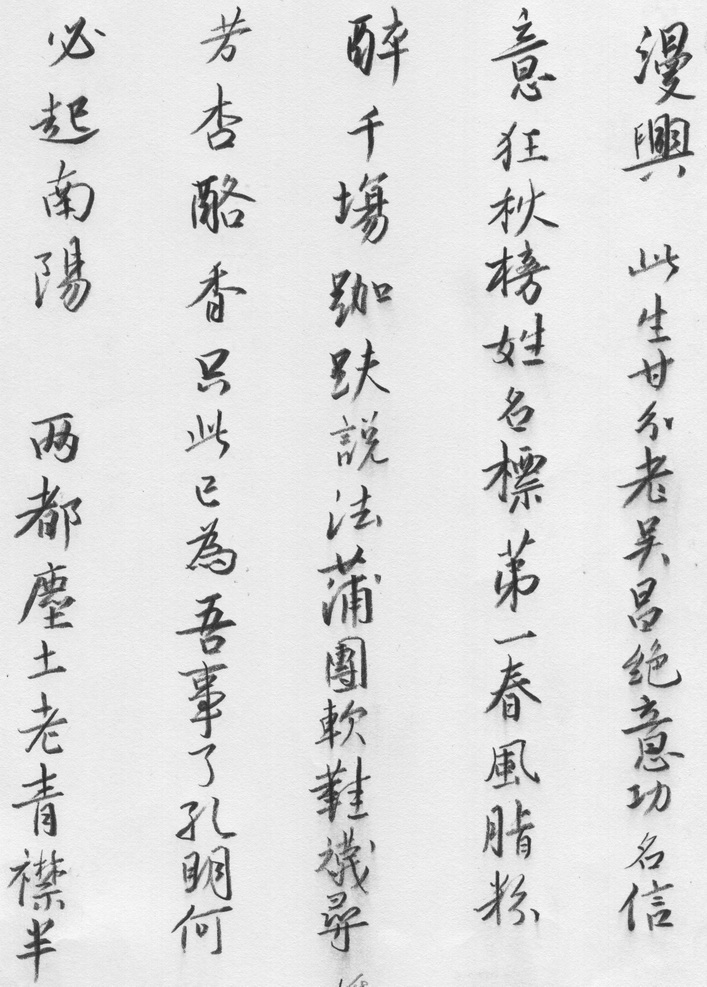 漫興 此生甘分老吴昌绝意功名信
意狂秋榜姓名標第一春風脂粉
醉千場跏趺說法蒲團軟鞋襪尋
芳杏酪香只此已為吾事了孔明何
必起南陽 两都塵土老青襟半